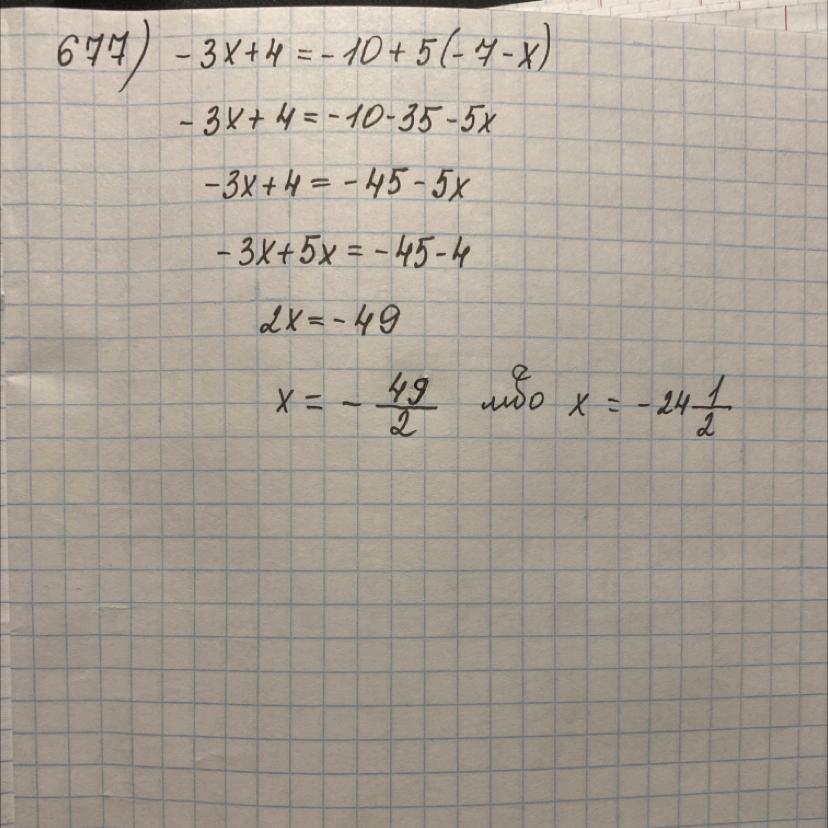 677) -3x+4=-10+5(-7-x)
-3x+4=-10-35-5x
-3x+4=-45-5x
-3x+5x=-45-4
2x=-49
x = - 49/2 либо x = -24 1/2